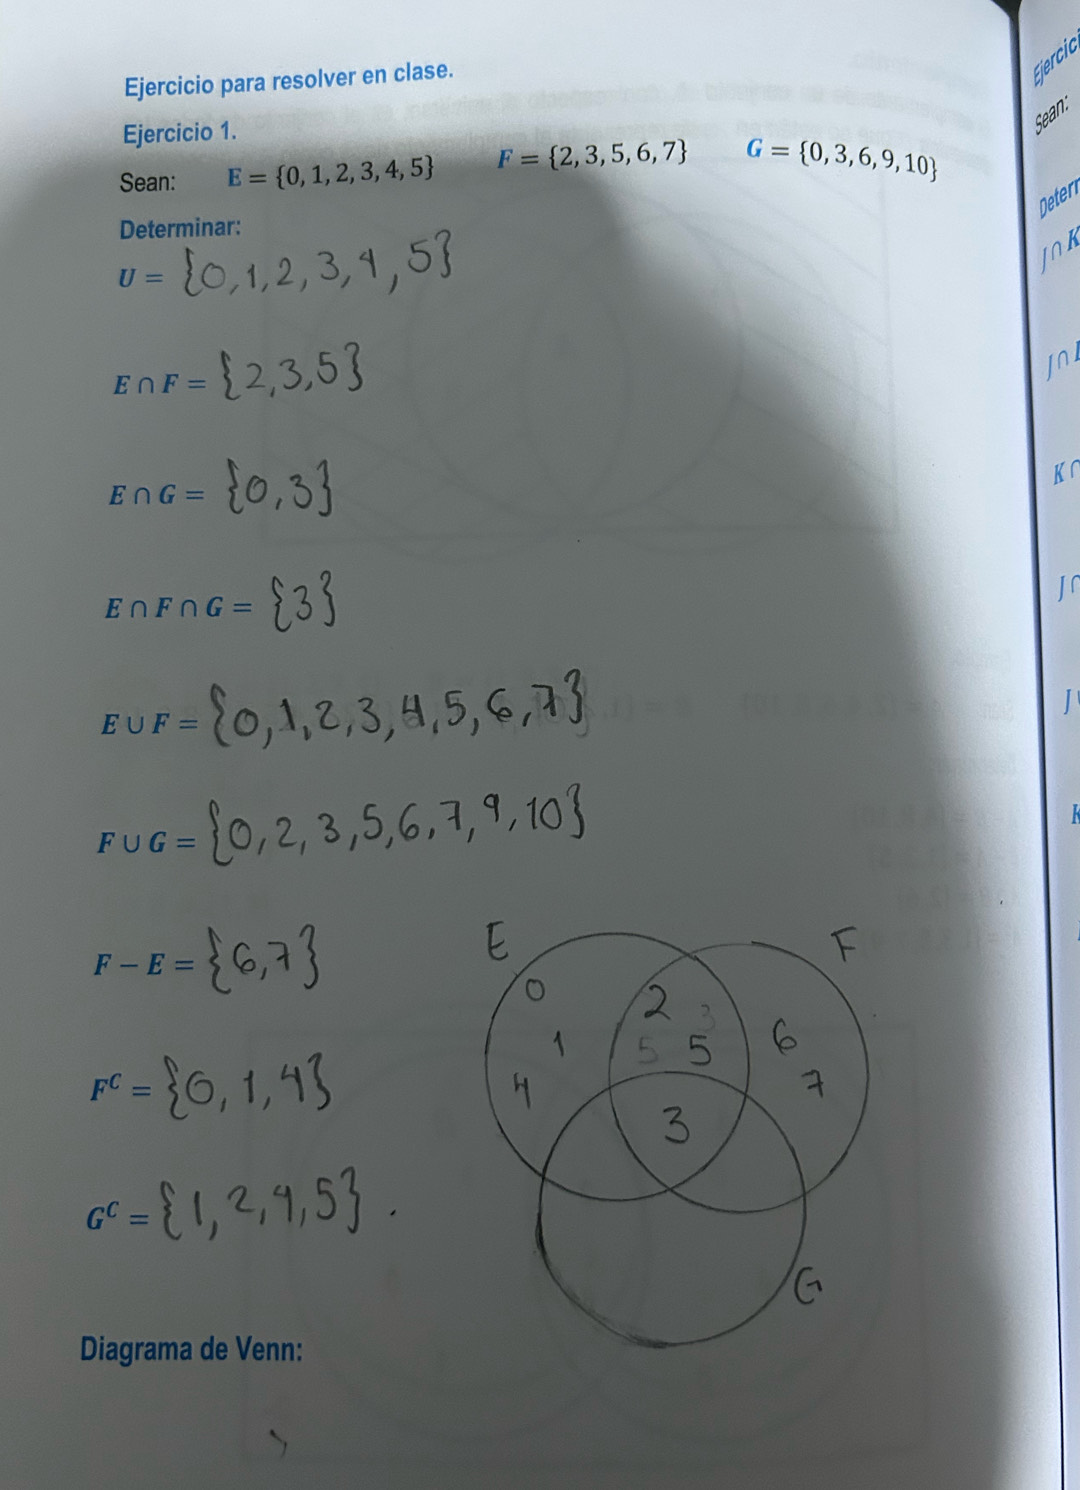 Ejercicio para resolver en clase.
Ejercicio 1.
Sean: E = {0, 1, 2, 3, 4, 5} F = {2, 3, 5, 6, 7} G = {0, 3, 6, 9, 10}
Determinar:
U = {0, 1, 2, 3, 4, 5}
E ∩ F = {2, 3, 5}
E ∩ G = {0, 3}
E ∩ F ∩ G = {3}
E ∪ F = {0, 1, 2, 3, 4, 5, 6, 7}
F ∪ G = {0, 2, 3, 5, 6, 7, 9, 10}
F − E = {6, 7}
Fᶜ = {0, 1, 4}
Gᶜ = {1, 2, 4, 5}.
E F
0 2 3
1 5 5 6
4 7
3
G
Diagrama de Venn:
Ejercici
Sean:
Deter
J ∩ K
J ∩
K ∩
J ∩
J